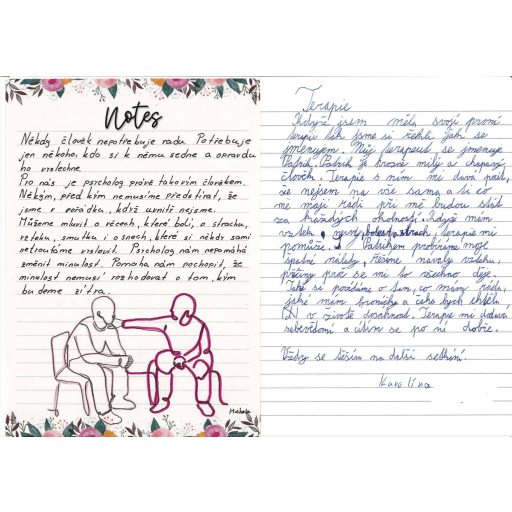 Notes
Někdy člověk nepotřebuje radu. Potřebuje
jen někoho, kdo si k němu sedne a opravdu
ho vyslechne.
Pro nás je psycholog právě takovým člověkem.
Někým, před kým nemusíme předstírat, že
jsme v pořádku, když uvnitř nejsme.
Můžeme mluvit o věcech, které bolí, o strachu,
vzteku, smutku i o snech, které si někdy sami
netroufáme vyslovit. Psycholog nám nepomáhá
změnit minulost. Pomáhá nám pochopit, že
minulost nemusí rozhodovat o tom, kým
budeme zítra.
Terapie
Když jsem měla svojí první
terapii tak jsme si řekli jak se
jmenujem. Můj terapeut se jmenuje
Patrik. Patrik je hrozně milý a chápavý
člověk. Terapie s ním mi dává pocit,
že nejsem na vše sama a ti co
mě mají rádi při mě budou stát
za každých okolností. Když mám
vztek, bolest, strach, terapie mi
pomůže. S Patrikem probíráme moje
špatné nálady. Řešíme návaly vzteku,
příčiny proč se mi to všechno děje.
Také si povídáme o tom, co mám ráda,
jaké mám koníčky a čeho bych chtěla
v životě dosáhnout. Terapie mi dodává
sebevědomí a cítím se po ní dobře.
Vždy se těším na další setkání.
Karolína